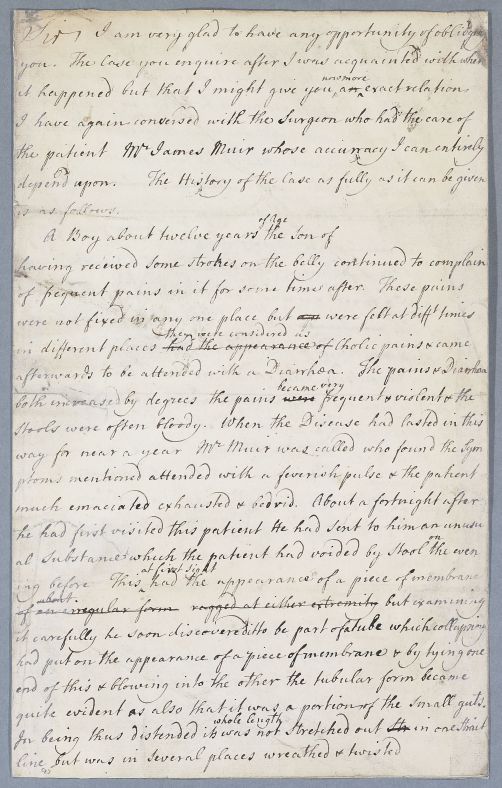 Sir, I am very glad to have any opportunity of obliging
you. The Case you enquire after I was acquainted with when
it happened but that I might give you an exact relation
one more
I have again conversed with the Surgeon who had the care of
the patient Mr. James Muir whose accuracy I can entirely
depend upon. The History of the Case as fully as it can be given
is as follows.
of Age
A Boy about twelve years the Son of
having received some strokes on the belly continued to complain
of frequent pains in it for some time after. These pains
were not fixed in any one place but were felt at difft times
they were considered as
in different places had the appearance of Cholic pains & came
afterwards to be attended with a Diarrhœa. The pains & Diarrhœa
became very
both increased by degrees the pains were frequent & violent & the
Stools were often bloody. When the Disease had lasted in this
way for near a year Mr. Muir was called who found the Sym
ptoms mentioned attended with a feverish pulse & the patient
much emaciated exhausted & bedrid. About a fortnight after
he had first visited this patient He had sent to him an unusu
al Substance which the patient had voided by Stool the even
on
ing before. This had the appearance of a piece of membrane
at first sight
about
of an irregular form ragged at either extremity but examining
it carefully he soon discovered it to be part of a tube which collapsing
had put on the appearance of a piece of membrane & by tying one
end of this & blowing into the other the tubular form became
quite evident as also that it was a portion of the Small guts.
whole length
In being thus distended it was not stretched out in one Strait
line but was in several places wreathed & twisted